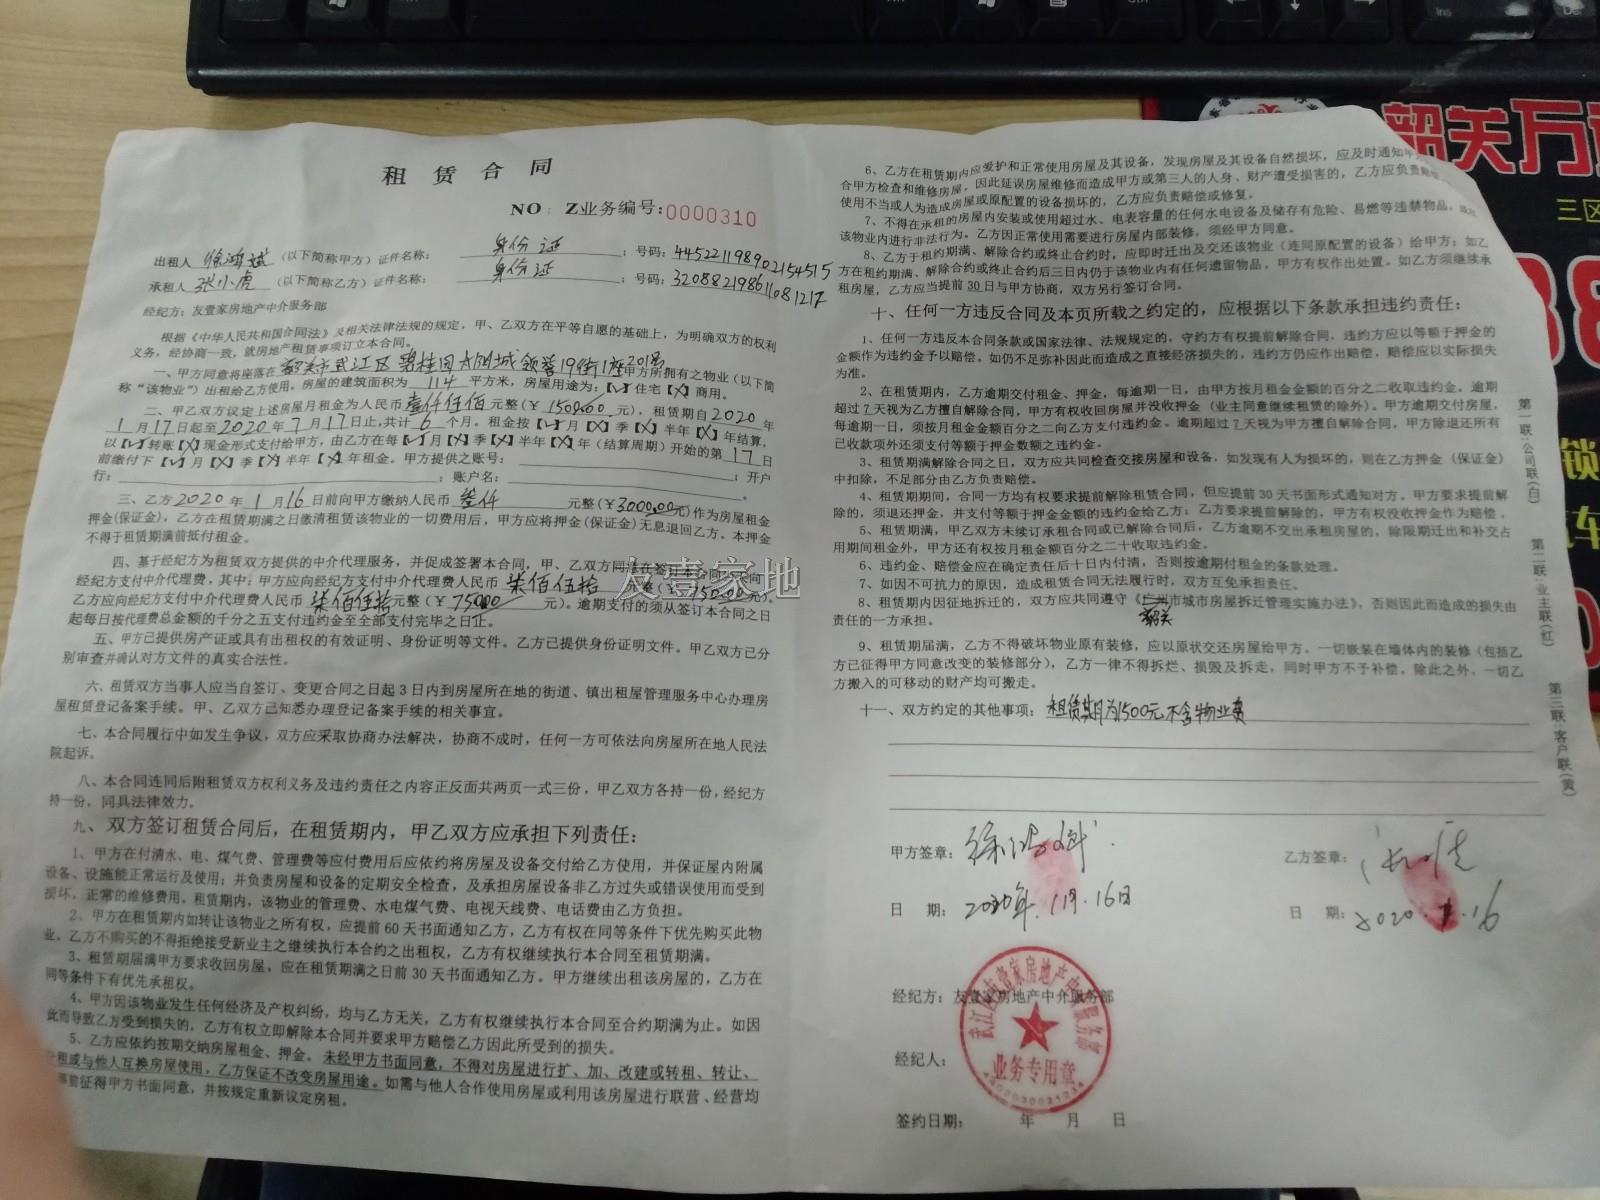 租 赁 合 同
NO: Z业务编号:0000310
出租人 徐鸿斌 (以下简称甲方) 证件名称: 身份证 ;号码:445221198902154515
承租人 张小虎 (以下简称乙方) 证件名称: 身份证 ;号码:320882198611081217
经纪方:友壹家房地产中介服务部
根据《中华人民共和国合同法》及相关法律法规的规定,甲、乙双方在平等自愿的基础上,为明确双方的权利
义务,经协商一致,就房地产租赁事项订立本合同。
一、甲方同意将座落在韶关市武江区碧桂园太阳城领誉19街1座201房甲方所拥有之物业(以下简
称“该物业”)出租给乙方使用,房屋的建筑面积为 114 平方米,房屋用途为:【√】住宅【X】商用。
二、甲乙双方议定上述房屋月租金为人民币壹仟伍佰元整(¥1500.00元),租赁期自2020年
1月17日起至2020年7月17日止,共计6个月。租金按【√】月【X】季【X】半年【X】年结算,
以【√】转账【X】现金形式支付给甲方,由乙方在每【√】月【X】季【X】半年【X】年(结算周期)开始的第17日
前缴付下【√】月【X】季【X】半年【X】年租金。甲方提供之账号: ;开户
行: ;账户名: 。
三、乙方2020年1月16日前向甲方缴纳人民币叁仟 元整(¥3000.00元)作为房屋租金
押金(保证金),乙方在租赁期满之日缴清租赁该物业的一切费用后,甲方应将押金(保证金)无息退回乙方。本押金
不得于租赁期满前抵付租金。
四、基于经纪方为租赁双方提供的中介代理服务,并促成签署本合同,甲、乙双方同意在签订本合同之日向
经纪方支付中介代理费,其中:甲方应向经纪方支付中介代理费人民币 柒佰伍拾 元整(¥750.00元)。
乙方应向经纪方支付中介代理费人民币 柒佰伍拾元整(¥750.00 元)。逾期支付的须从签订本合同之日
起每日按代理费总金额的千分之五支付违约金至全部支付完毕之日止。
五、甲方已提供房产证或具有出租权的有效证明、身份证明等文件。乙方已提供身份证明文件。甲乙双方已分
别审查并确认对方文件的真实合法性。
六、租赁双方当事人应当自签订、变更合同之日起3日内到房屋所在地的街道、镇出租屋管理服务中心办理房
屋租赁登记备案手续。甲、乙双方已知悉办理登记备案手续的相关事宜。
七、本合同履行中如发生争议,双方应采取协商办法解决,协商不成时,任何一方可依法向房屋所在地人民法
院起诉。
八、本合同连同后附租赁双方权利义务及违约责任之内容正反面共两页一式三份,甲乙双方各持一份,经纪方
持一份,同具法律效力。
九、双方签订租赁合同后,在租赁期内,甲乙双方应承担下列责任:
1、甲方在付清水、电、煤气费、管理费等应付费用后应依约将房屋及设备交付给乙方使用,并保证屋内附属
设备、设施能正常运行及使用;并负责房屋和设备的定期安全检查,及承担房屋设备非乙方过失或错误使用而受到
损坏,正常的维修费用。租赁期内,该物业的管理费、水电煤气费、电视天线费、电话费由乙方负担。
2、甲方在租赁期内如转让该物业之所有权,应提前60天书面通知乙方,乙方有权在同等条件下优先购买此物
业。乙方不购买的不得拒绝接受新业主之继续执行本合约之出租权,乙方有权继续执行本合同至租赁期满。
3、租赁期届满甲方要求收回房屋,应在租赁期满之日前30天书面通知乙方。甲方继续出租该房屋的,乙方在
同等条件下有优先承租权。
4、甲方因该物业发生任何经济及产权纠纷,均与乙方无关,乙方有权继续执行本合同至合约期满为止。如因
此而导致乙方受到损失的,乙方有权立即解除本合同并要求甲方赔偿乙方因此所受到的损失。
5、乙方应依约按期交纳房屋租金、押金。未经甲方书面同意,不得对房屋进行扩、加、改建或转租、转让、
分租或与他人互换房屋使用,乙方保证不改变房屋用途。如需与他人合作使用房屋或利用该房屋进行联营、经营均
事前征得甲方书面同意,并按规定重新议定房租。
6、乙方在租赁期内应爱护和正常使用房屋及其设备,发现房屋及其设备自然损坏,应及时通知甲
合甲方检查和维修房屋,因此延误房屋维修而造成甲方或第三人的人身、财产遭受损害的,乙方应负责赔偿
使用不当或人为造成房屋或原配置的设备损坏的,乙方应负责赔偿或修复。
7、不得在承租的房屋内安装或使用超过水、电表容量的任何水电设备及储存有危险、易燃等违禁物品,或在
该物业内进行非法行为。乙方因正常使用需要进行房屋内部装修,须经甲方同意。
8、乙方于租约期满、解除合约或终止合约时,应即时迁出及交还该物业(连同原配置的设备)给甲方;如乙
方在租约期满、解除合约或终止合约后三日内仍于该物业内有任何遗留物品,甲方有权作出处置。如乙方须继续承
租房屋,乙方应当提前30日与甲方协商,双方另行签订合同。
十、任何一方违反合同及本页所载之约定的,应根据以下条款承担违约责任:
1、任何一方违反本合同条款或国家法律、法规规定的,守约方有权提前解除合同,违约方应以等额于押金的
金额作为违约金予以赔偿。如仍不足弥补因此而造成之直接经济损失的,违约方仍应作出赔偿,赔偿应以实际损失
为准。
2、在租赁期内,乙方逾期交付租金、押金,每逾期一日,由甲方按月租金金额的百分之二收取违约金。逾期
超过7天视为乙方擅自解除合同,甲方有权收回房屋并没收押金(业主同意继续租赁的除外)。甲方逾期交付房屋,
每逾期一日,须按月租金金额百分之二向乙方支付违约金。逾期超过7天视为甲方擅自解除合同,甲方除退还所有
已收款项外还须支付等额于押金数额之违约金。
3、租赁期满解除合同之日,双方应共同检查交接房屋和设备,如发现有人为损坏的,则在乙方押金(保证金)
中扣除,不足部分由乙方负责赔偿。
4、租赁期期间,合同一方均有权要求提前解除租赁合同,但应提前30天书面形式通知对方。甲方要求提前解
除的,须退还押金,并支付等额于押金金额的违约金给乙方;乙方要求提前解除的,甲方有权没收押金作为赔偿。
5、租赁期满,甲乙双方未续订承租合同或已解除合同后,乙方逾期不交出承租房屋的,除限期迁出和补交占
用期间租金外,甲方还有权按月租金额百分之二十收取违约金。
6、违约金、赔偿金应在确定责任后十日内付清,否则按逾期付租金的条款处理。
7、如因不可抗力的原因,造成租赁合同无法履行时,双方互免承担责任。
8、租赁期内因征地拆迁的,双方应共同遵守《广州市城市房屋拆迁管理实施办法》,否则因此而造成的损失由
韶关
责任的一方承担。
9、租赁期届满,乙方不得破坏物业原有装修,应以原状交还房屋给甲方。一切嵌装在墙体内的装修(包括乙
方已征得甲方同意改变的装修部分),乙方一律不得拆烂、损毁及拆走,同时甲方不予补偿。除此之外,一切乙
方搬入的可移动的财产均可搬走。
十一、双方约定的其他事项:租赁期月为1500元不含物业费
甲方签章:徐鸿斌
乙方签章:
日 期:2020年.1月.16日
日 期:2020.1.16
经纪方:友壹家房地产中介服务部
经纪人:
签约日期: 年 月 日
武江区友壹家房地产中介服务部
业务专用章
第一联:公司联(白)
第二联:业主联(红)
第三联:客户联(黄)
友壹家地
韶关万
三区
锁
车